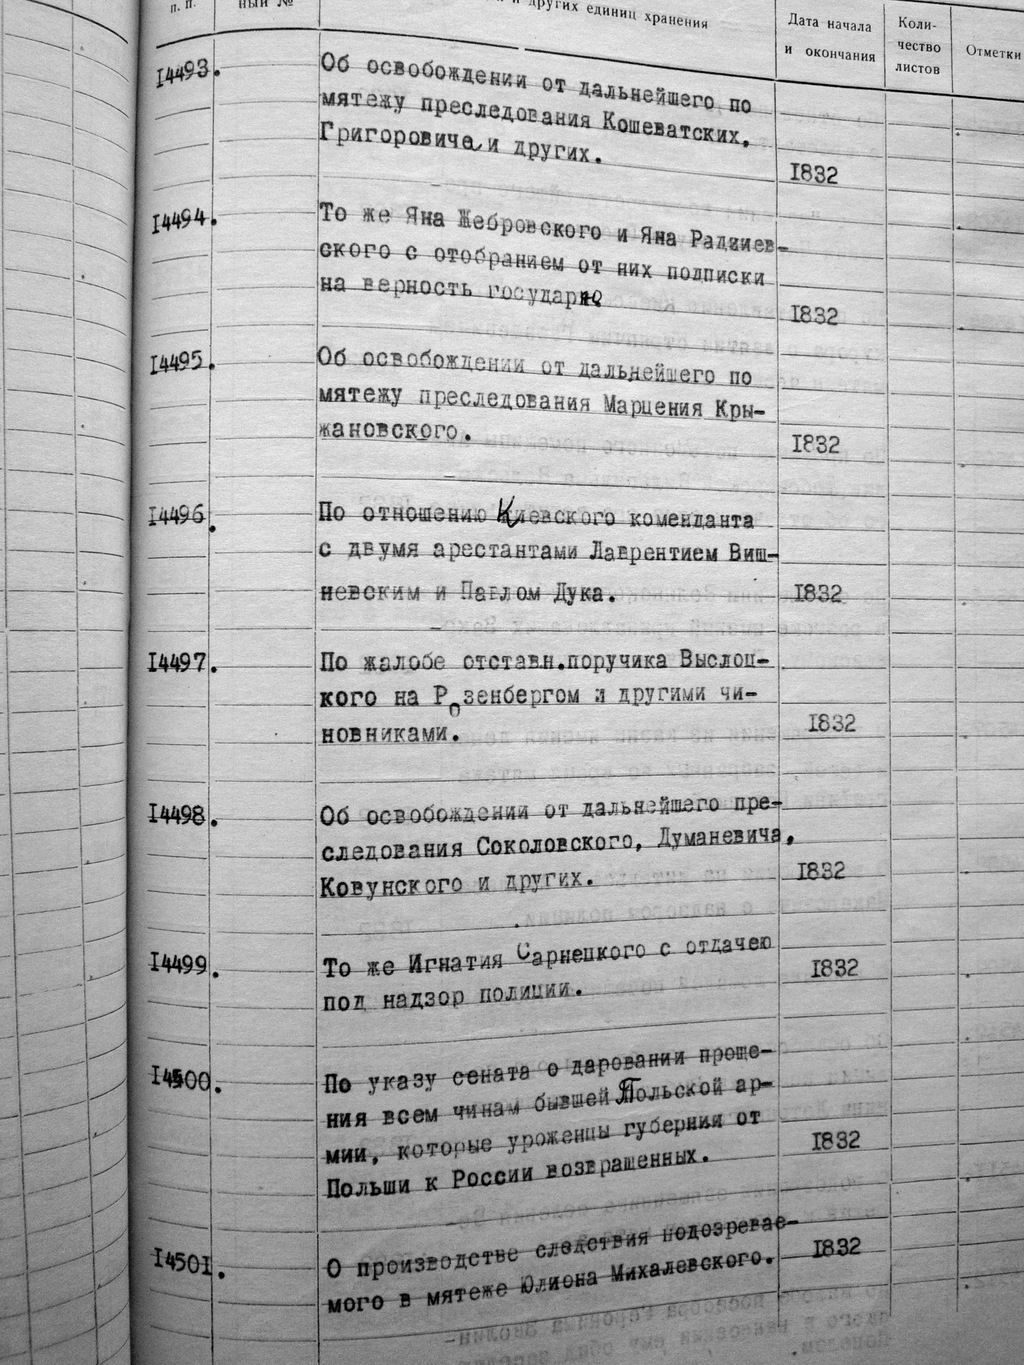 п. п.
ный №
и других единиц хранения
Дата начала
и окончания
Коли-
чество
листов
Отметки
14493.
Об освобождении от дальнейшего по
мятежу преследования Кошеватских,
Григоровича и других.
1832
14494.
То же Яна Жебровского и Яна Радзиев-
ского с отобранием от них подписки
на верность государю
1832
14495.
Об освобождении от дальнейшего по
мятежу преследования Марцения Кры-
жановского.
1832
14496.
По отношению Киевского коменданта
с двумя арестантами Лаврентием Виш-
невским и Павлом Дука.
1832
14497.
По жалобе отставн.поручика Выслоц-
кого на Розенбергом и другими чи-
новниками.
1832
14498.
Об освобождении от дальнейшего пре-
следования Соколовского, Думаневича,
Ковунского и других.
1832
14499.
То же Игнатия Сарнецкого с отдачею
под надзор полиции.
1832
14500.
По указу сената о даровании проще-
ния всем чинам бывшей Польской ар-
мии, которые уроженцы губернии от
Польши к России возвращенных.
1832
14501.
О производстве следствия подозревае-
мого в мятеже Юлиона Михалевского.
1832